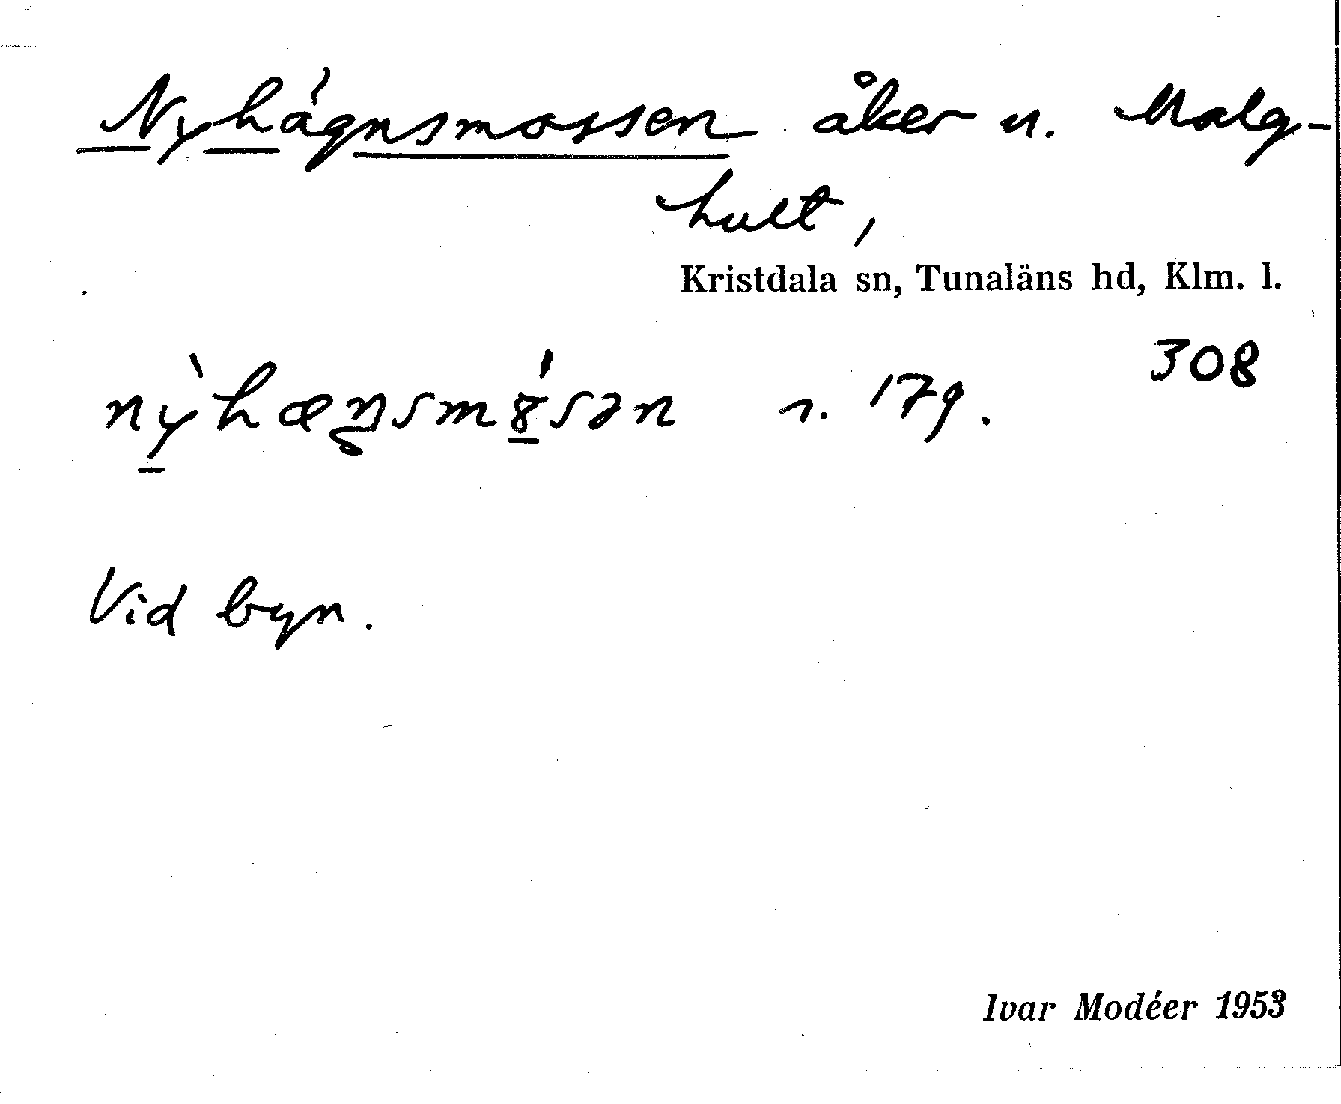 Nyhágnsmossen åker n. Malg-
hult,
Kristdala sn, Tunaläns hd, Klm. l.
308
n. 179.
Vid byn.
Ivar Modéer 1953